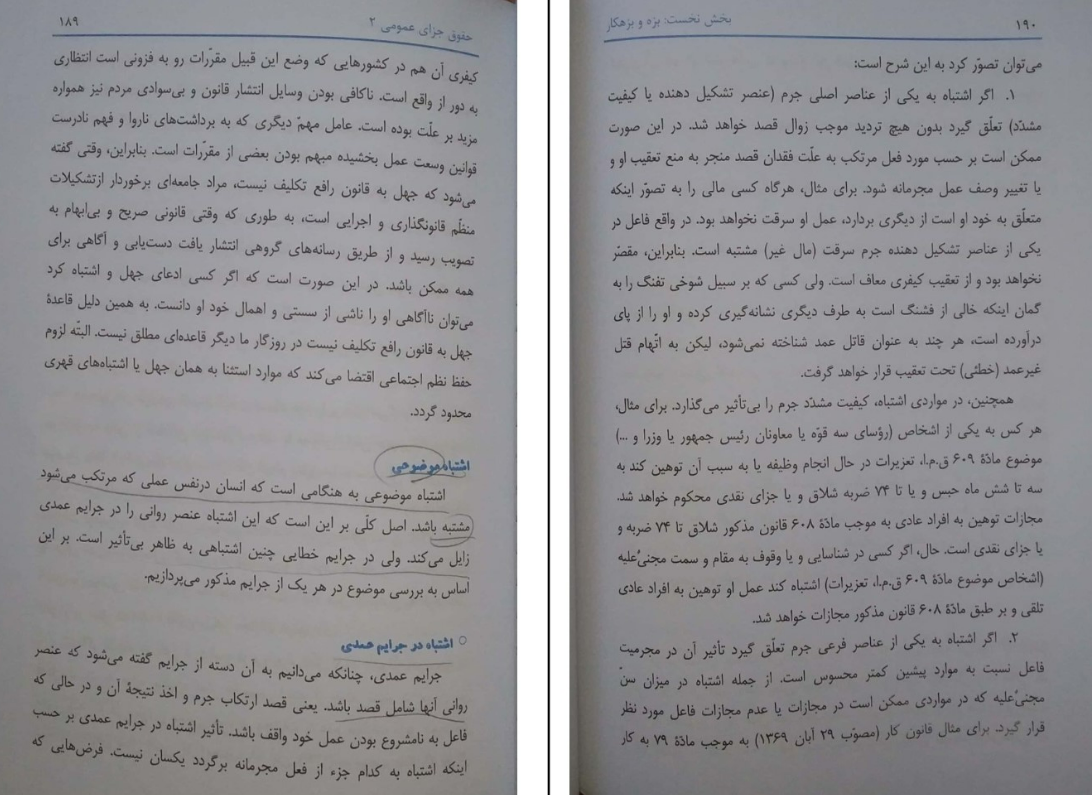 حقوق جزای عمومی ۲
۱۸۹
کیفری آن هم در کشورهایی که وضع این قبیل مقرّرات رو به فزونی است انتظاری
به دور از واقع است. ناکافی بودن وسایل انتشار قانون و بی‌سوادی مردم نیز همواره
مزید بر علّت بوده است. عامل مهمّ دیگری که به برداشت‌های ناروا و فهم نادرست
قوانین وسعت عمل بخشیده مبهم بودن بعضی از مقرّرات است. بنابراین، وقتی گفته
می‌شود که جهل به قانون رافع تکلیف نیست، مراد جامعه‌ای برخوردار ازتشکیلات
منظّم قانونگذاری و اجرایی است، به طوری که وقتی قانونی صریح و بی‌ابهام به
تصویب رسید و از طریق رسانه‌های گروهی انتشار یافت دست‌یابی و آگاهی برای
همه ممکن باشد. در این صورت است که اگر کسی ادعای جهل و اشتباه کرد
می‌توان ناآگاهی او را ناشی از سستی و اهمال خود او دانست. به همین دلیل قاعدهٔ
جهل به قانون رافع تکلیف نیست در روزگار ما دیگر قاعده‌ای مطلق نیست. البتّه لزوم
حفظ نظم اجتماعی اقتضا می‌کند که موارد استثنا به همان جهل یا اشتباه‌های قهری
محدود گردد.
اشتباه موضوعی
اشتباه موضوعی به هنگامی است که انسان درنفس عملی که مرتکب می‌شود
مشتبه باشد. اصل کلّی بر این است که این اشتباه عنصر روانی را در جرایم عمدی
زایل می‌کند. ولی در جرایم خطایی چنین اشتباهی به ظاهر بی‌تأثیر است. بر این
اساس به بررسی موضوع در هر یک از جرایم مذکور می‌پردازیم.
○ اشتباه در جرایم عمدی
جرایم عمدی، چنانکه می‌دانیم به آن دسته از جرایم گفته می‌شود که عنصر
روانی آنها شامل قصد باشد. یعنی قصد ارتکاب جرم و اخذ نتیجهٔ آن و در حالی که
فاعل به نامشروع بودن عمل خود واقف باشد. تأثیر اشتباه در جرایم عمدی بر حسب
اینکه اشتباه به کدام جزء از فعل مجرمانه برگردد یکسان نیست. فرض‌هایی که
۱۹۰
بخش نخست: بزه و بزهکار
می‌توان تصوّر کرد به این شرح است:
۱. اگر اشتباه به یکی از عناصر اصلی جرم (عنصر تشکیل دهنده یا کیفیت
مشدّد) تعلّق گیرد بدون هیچ تردید موجب زوال قصد خواهد شد. در این صورت
ممکن است بر حسب مورد فعل مرتکب به علّت فقدان قصد منجر به منع تعقیب او و
یا تغییر وصف عمل مجرمانه شود. برای مثال، هرگاه کسی مالی را به تصوّر اینکه
متعلّق به خود او است از دیگری بردارد، عمل او سرقت نخواهد بود. در واقع فاعل در
یکی از عناصر تشکیل دهنده جرم سرقت (مال غیر) مشتبه است. بنابراین، مقصّر
نخواهد بود و از تعقیب کیفری معاف است. ولی کسی که بر سبیل شوخی تفنگ را به
گمان اینکه خالی از فشنگ است به طرف دیگری نشانه‌گیری کرده و او را از پای
درآورده است، هر چند به عنوان قاتل عمد شناخته نمی‌شود، لیکن به اتّهام قتل
غیرعمد (خطئی) تحت تعقیب قرار خواهد گرفت.
همچنین، در مواردی اشتباه، کیفیت مشدّد جرم را بی‌تأثیر می‌گذارد. برای مثال،
هر کس به یکی از اشخاص (رؤسای سه قوّه یا معاونان رئیس جمهور یا وزرا و ...)
موضوع مادّهٔ ۶۰۹ ق.م.ا، تعزیرات در حال انجام وظیفه یا به سبب آن توهین کند به
سه تا شش ماه حبس و یا تا ۷۴ ضربه شلاق و یا جزای نقدی محکوم خواهد شد.
مجازات توهین به افراد عادی به موجب مادّهٔ ۶۰۸ قانون مذکور شلاق تا ۷۴ ضربه و
یا جزای نقدی است. حال، اگر کسی در شناسایی و یا وقوف به مقام و سمت مجنیٌ‌علیه
(اشخاص موضوع مادّهٔ ۶۰۹ ق.م.ا، تعزیرات) اشتباه کند عمل او توهین به افراد عادی
تلقی و بر طبق مادّهٔ ۶۰۸ قانون مذکور مجازات خواهد شد.
۲. اگر اشتباه به یکی از عناصر فرعی جرم تعلّق گیرد تأثیر آن در مجرمیت
فاعل نسبت به موارد پیشین کمتر محسوس است. از جمله اشتباه در میزان سنّ
مجنیٌ‌علیه که در مواردی ممکن است در مجازات یا عدم مجازات فاعل مورد نظر
قرار گیرد. برای مثال قانون کار (مصوّب ۲۹ آبان ۱۳۶۹) به موجب مادّهٔ ۷۹ به کار